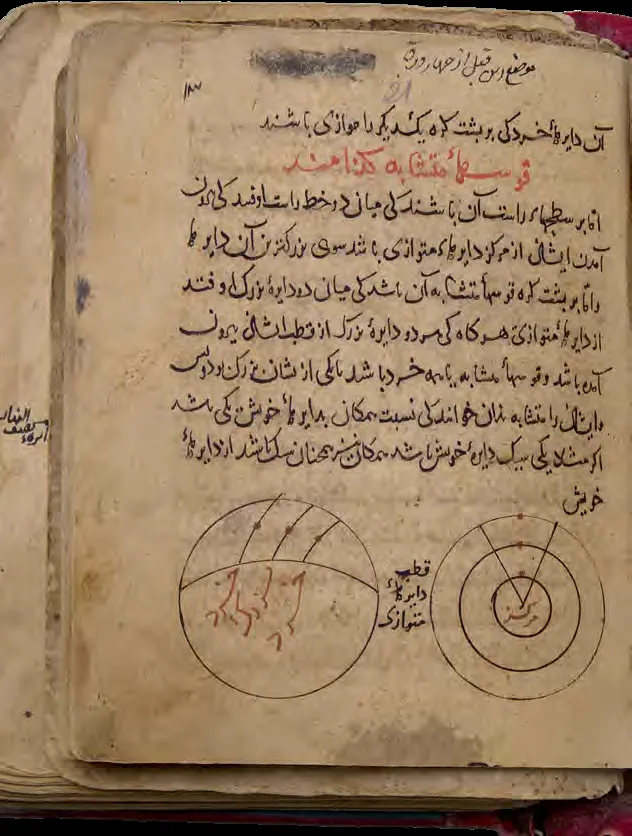 موضع این قبل از چهار ورق
آن دایرهاء خرد کی بر پشت کره یکدیگر را موازی باشند
قوسهاء متشابه کذامند
اما بر سطحهاء راست آن باشند کی میان دو خط راست اوفتد کی بیرون
آمدن ایشان از مرکز دایرهاء متوازی باشد سوی بزرکترین آن دایرها
واما بر پشت کره قوسهاء متشابه آن باشد کی میان دو دایرهٔ بزرک اوفتد
از دایرهاء متوازی هرکاه کی هر دو دایرهٔ بزرک از قطب ایشان بیرون
آمده باشد و قوسهاء متشابه یا همه خرد باشد یا یکی از نشان بزرک و دیکر
وایشان را متشابه بدان خوانند کی نسبت همکان بدایرهاء خویش یکی باشد
اکر مثلا یکی سیک دایرهٔ خویش باشد همکان نیز همچنان سیک باشد از دایرهاء
خویش
قطب
دایرهاء
متوازی
مرکز